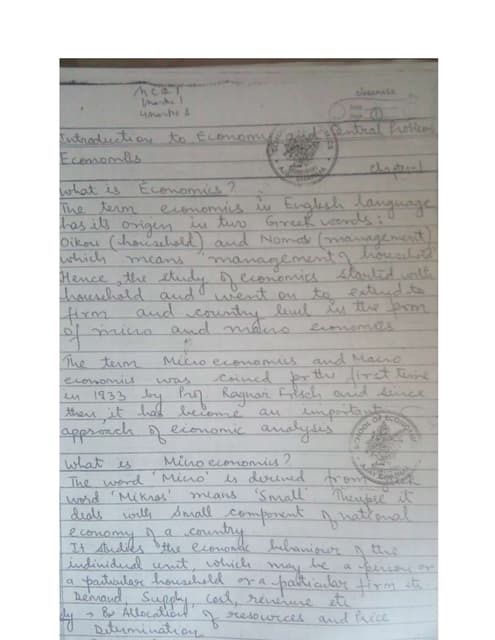 NCRT
1 marks 1
4 marks
classmate
Date
Page 1
Introduction to Economics and Central Problem
Economies
Chapter-1
What is Economics?
The term economics in English language
has its origin in two Greek words:
Oikou (household) and Nomos (management)
which means "management of household
Hence, the study of economics started with
household and went on to extend to
firm and country level in the form
of micro and macro economics
The term Micro economics and Macro
economics was coined for the first time
in 1933 by Prof. Ragnar Frisch and since
then, it has become an important
approach of economic analysis
SCHOOL OF ECONOMICS
What is Microeconomics?
The word 'Micro' is derived from Greek
word 'Mikros' means 'Small'. Therefore it
deals with small component of national
economy of a country
It studies the economic behaviour of the
individual unit, which may be a person or
a particular household or a particular firm etc
Demand, Supply, cost, revenue etc
→ Allocation of resources and Price
Determination